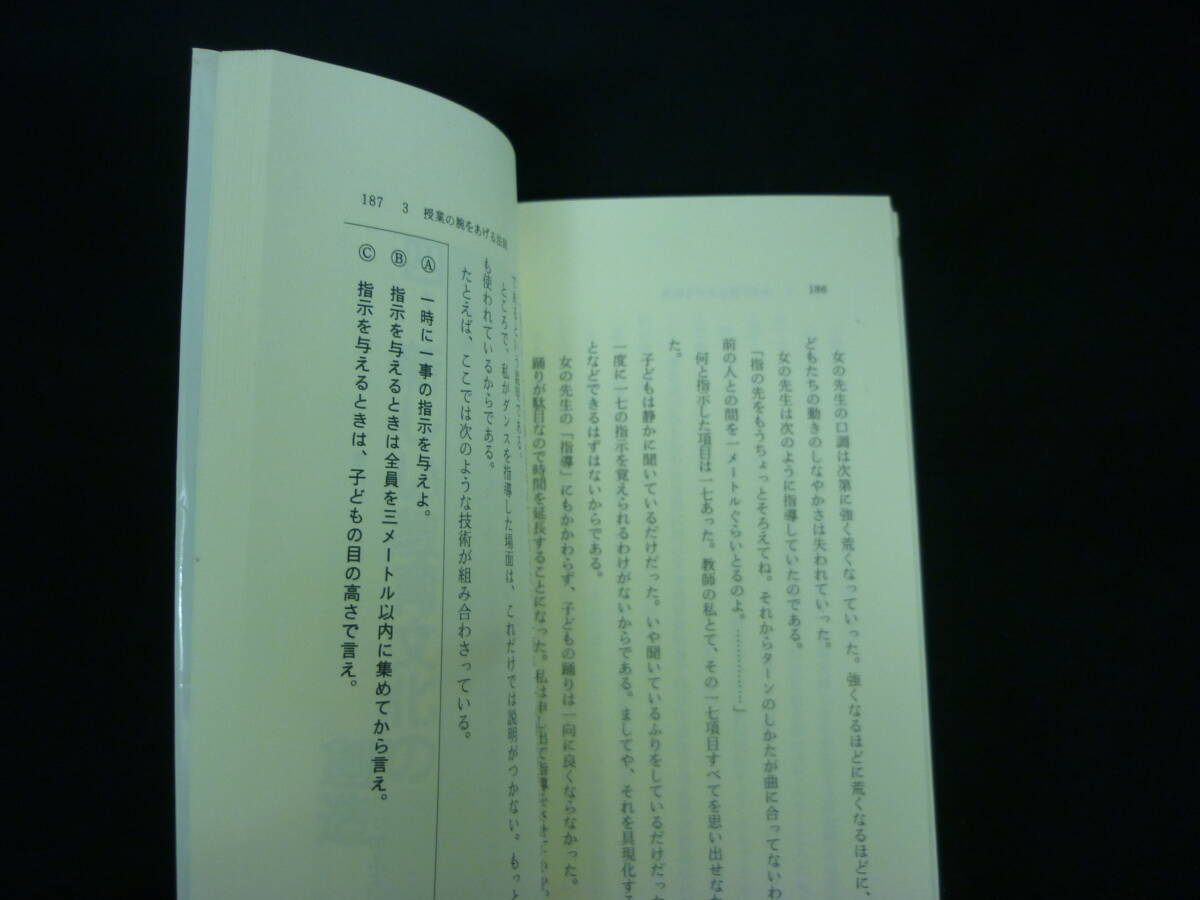 186
女の先生の口調は次第に強く荒くなっていった。強くなるほどに荒くなるほどに、
どもたちの動きのしなやかさは失われていった。
女の先生は次のように指導していたのである。
「指の先をもうちょっとそろえてね。それからターンのしかたが曲に合ってないわ
前の人との間を一メートルぐらいとるのよ。…………」
何と指示した項目は一七あった。教師の私とて、その一七項目すべてを思い出せな
た。
子どもは静かに聞いているだけだった。いや聞いているふりをしているだけだっ
一度に一七の指示を覚えられるわけがないからである。ましてや、それを具現化す
となどできるはずはないからである。
女の先生の「指導」にもかかわらず、子どもの踊りは一向に良くならなかった。
踊りが駄目なので時間を延長することになった。私は申し出て指導
187 3 授業の腕をあげる法則
ところで、私がダンスを指導した場面は、これだけでは説明がつかない。もっと
も使われているからである。
たとえば、ここでは次のような技術が組み合わさっている。
Ⓐ 一時に一事の指示を与えよ。
Ⓑ 指示を与えるときは全員を三メートル以内に集めてから言え。
Ⓒ 指示を与えるときは、子どもの目の高さで言え。